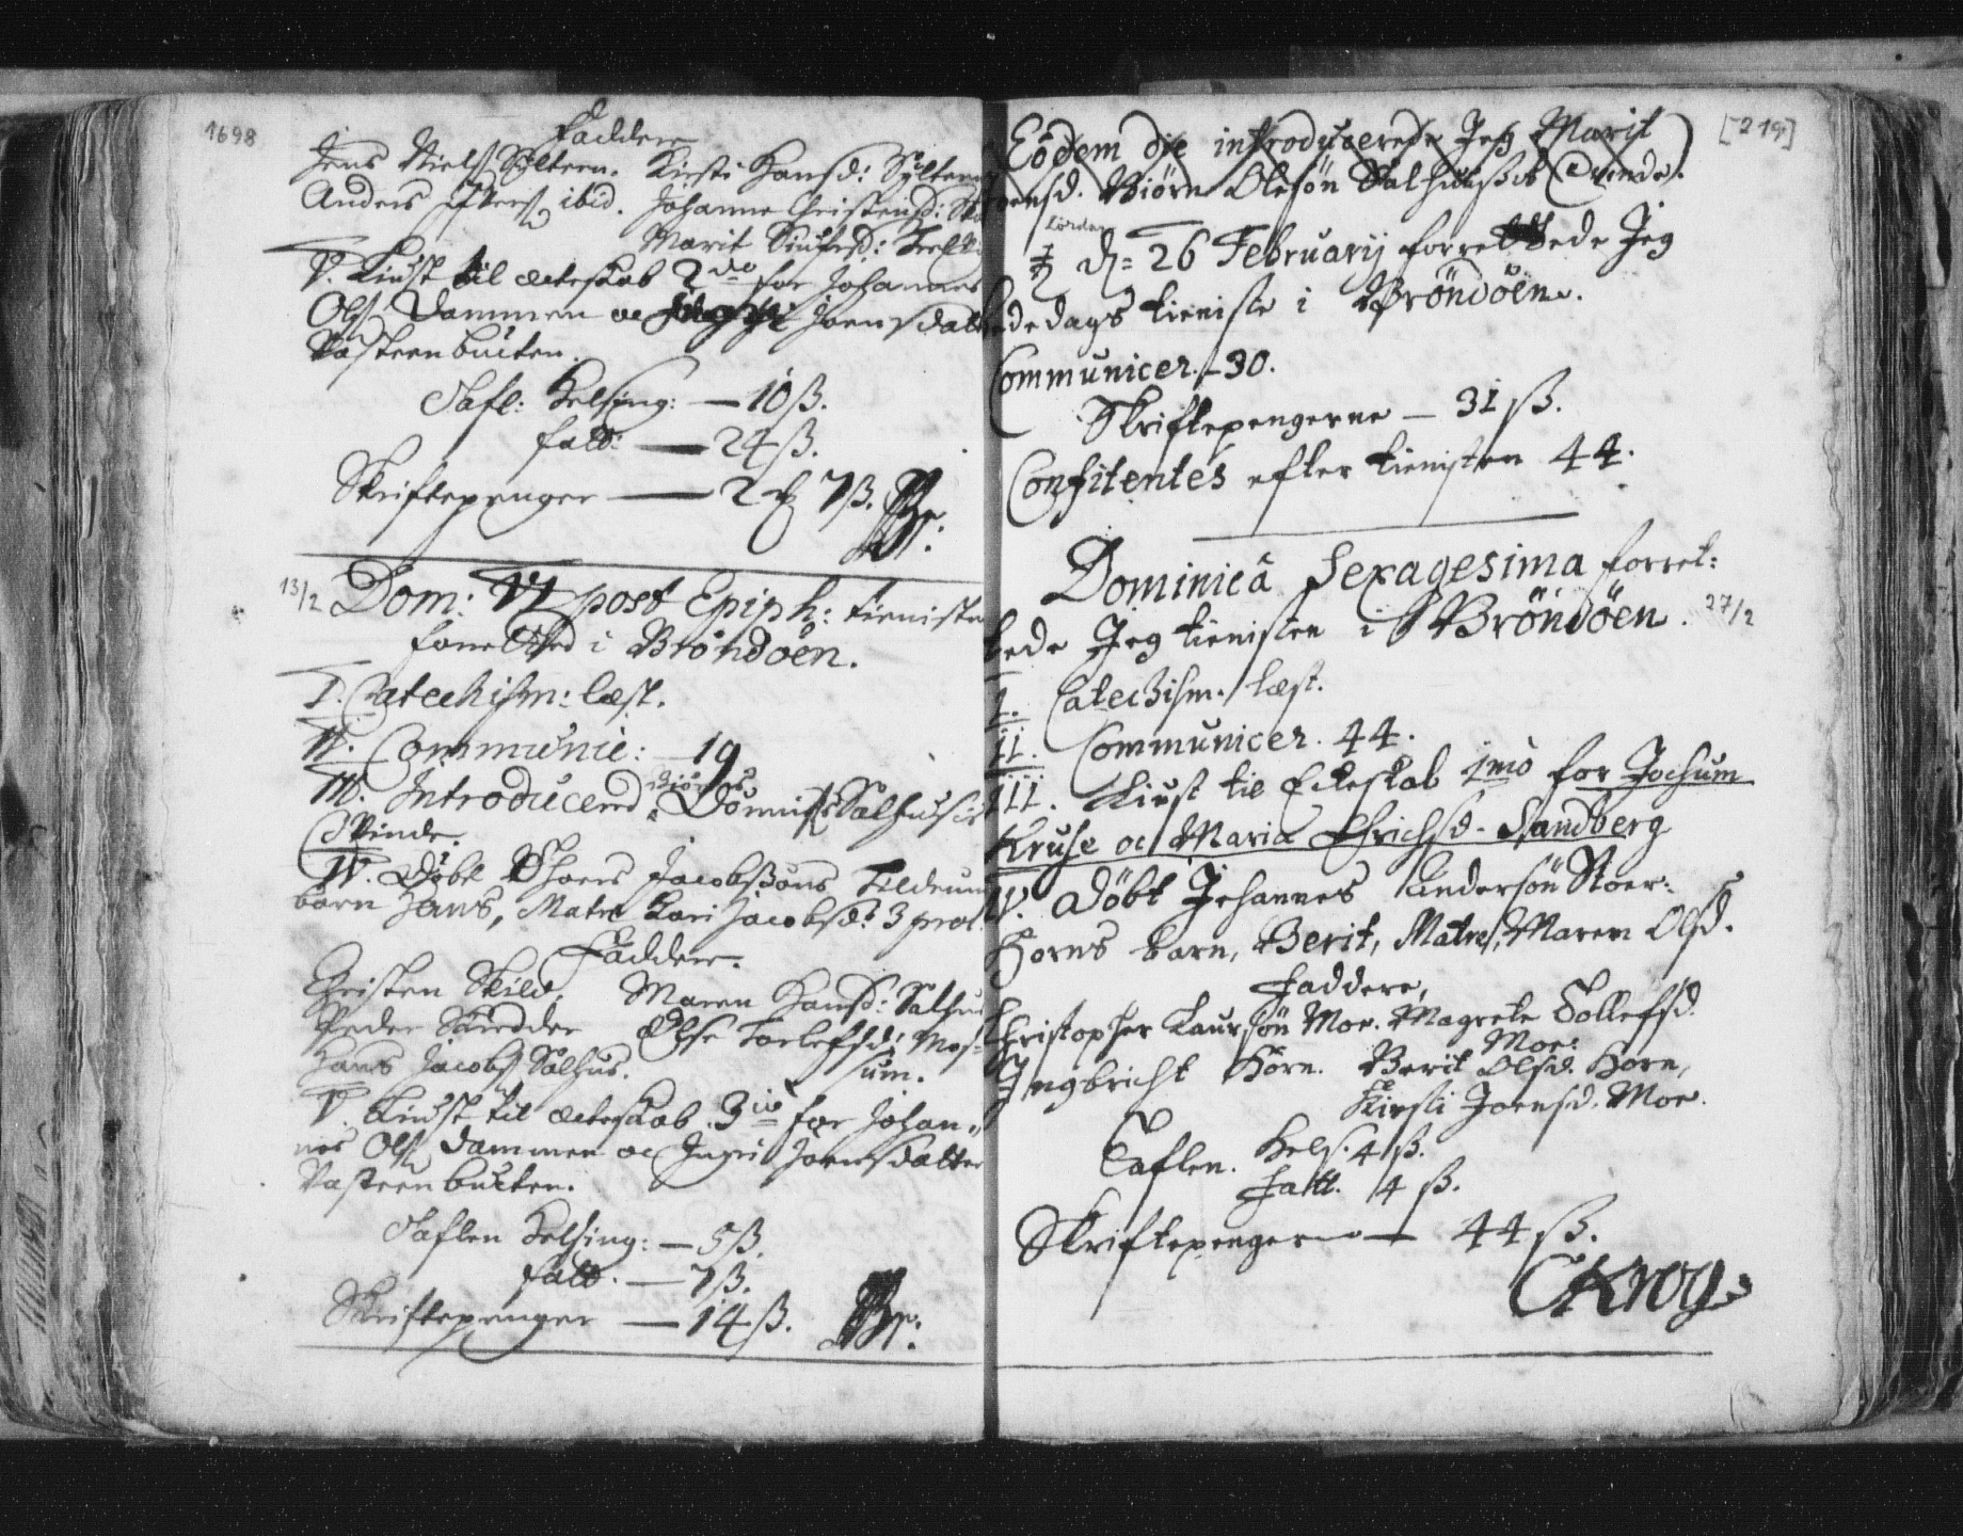 1698
Faddere
Jens Niels: Sylteren. Kirsti Hansd: Sylteren
Anders ibid. Johanne Christensd:
Marit
V. Liust til ecteskab 2do for Johannes
Ols: Dammen oc Joensdatter
Vasteenbucten.
Tafl: Helsing: — 10 ß.
fatt: — 24 ß.
Skriftepenger — 2 7 ß. Br:
13/2 Dom: VI post Epiph: tienisten
forretted i Bröndöen.
I. Catechism: læst.
II. Communic: — 19
III. Introducered Biörns Salhus
Qvinde.
IV. Döbt Jacobsöns Tilderum
barn Hans, Matre Kari Jacobsd: 3
Faddere.
Christen Skild. Maren Hansd: Salhus
Peder Else Torlefsd: Mos-
Hans Jacobs: Salhus. um.
V. Liust til ecteskab 3io for Johan-
nes Ols: Dammen oc Ingri Joensdatter
Vasteenbucten.
Taflen Helsing: — 5 ß.
fatt. — 7 ß.
Skriftepenger — 14 ß. Br:
[219]
Eodem die introducerede Jeg Marit
Joensd. Biörn Olesön Salhus Qvinde.
Lördag
d: 26 February forrettede Jeg
Bededags tieniste i Bröndöen.
Communicer. 30.
Skriftepengerne — 31 ß.
Confitentes efter tienisten 44.
Dominicâ Sexagesima forret-
tede Jeg tienisten i Bröndöen. 27/2
I. Catechism. læst.
II. Communicer. 44.
III. Liust til Ecteskab 1mo for Jochum
Kruse oc Maria Erichsd. Sandberg
IV. Döbt Johannes Andersön Stoer-
Horns barn, Berit, Matre, Maren Olsd.
Faddere,
Christopher Laursön Moe. Magrete Tollefsd.
Moe:
Ingbricht Horn. Berit Olsd. Horn,
Kirsti Joensd. Moe.
Taflen. Hels. 4 ß.
fatt. 4 ß.
Skriftepengerne — 44 ß.
CKrog